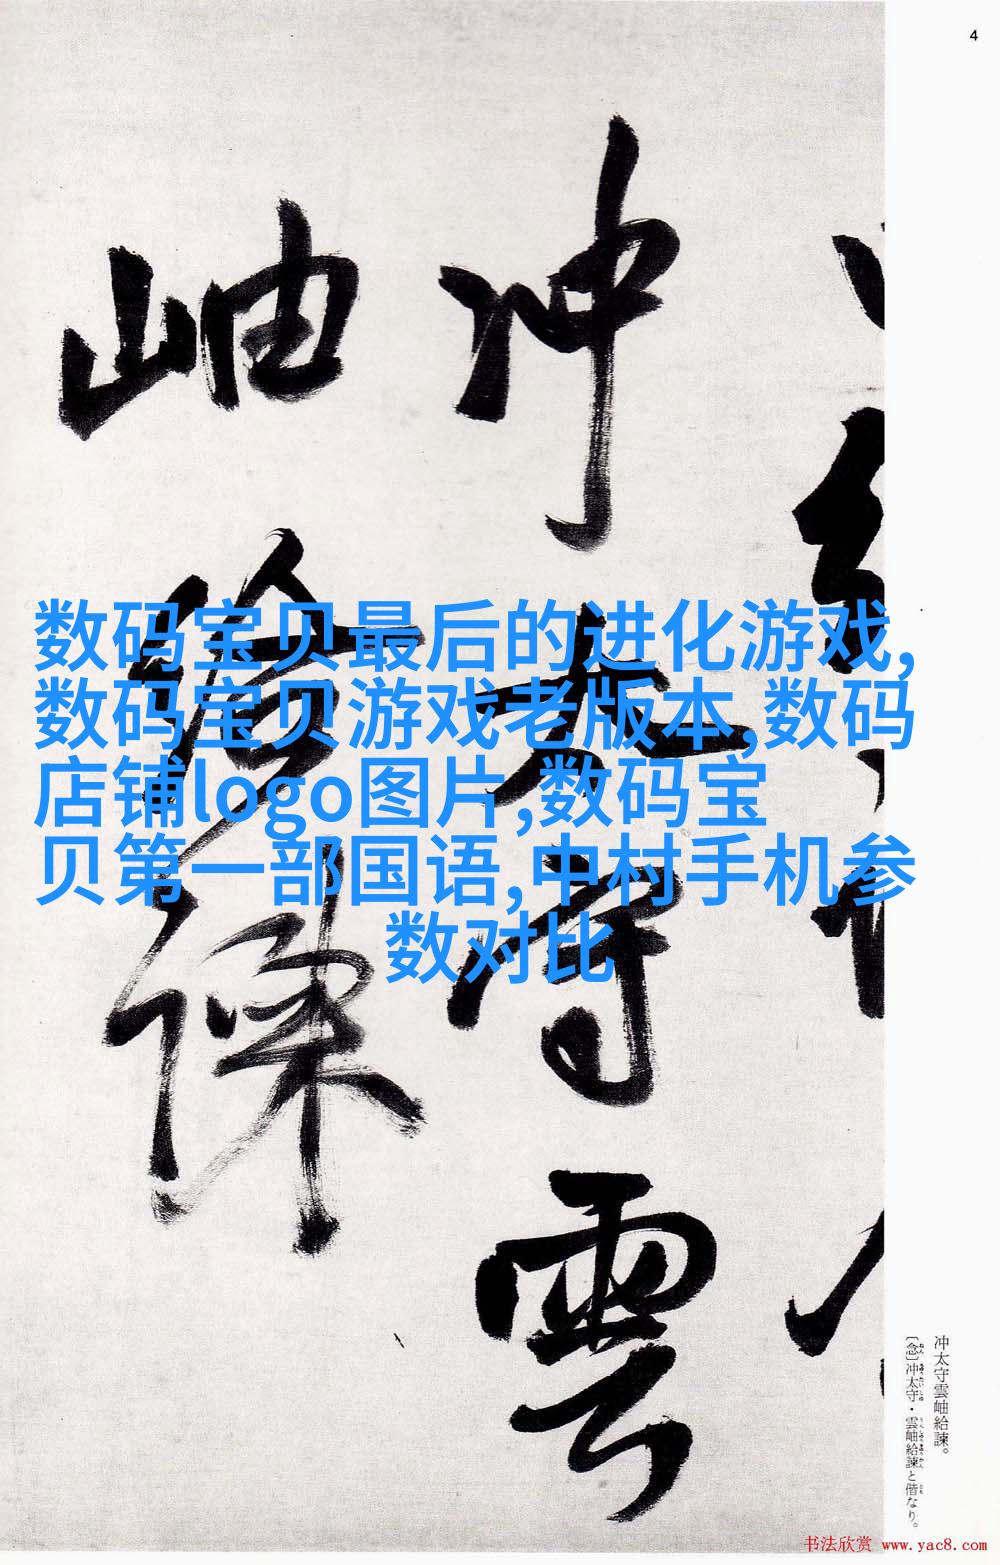 4
冲太守雲
岫給諫
数码宝贝最后的进化游戏,
数码宝贝游戏老版本,数码
店铺logo图片,数码宝
贝第一部国语,中村手机参
数对比
冲太守雲岫給諫。
〔念〕冲太守・雲岫給諫と偕なり。
书法欣赏 www.yac8.com